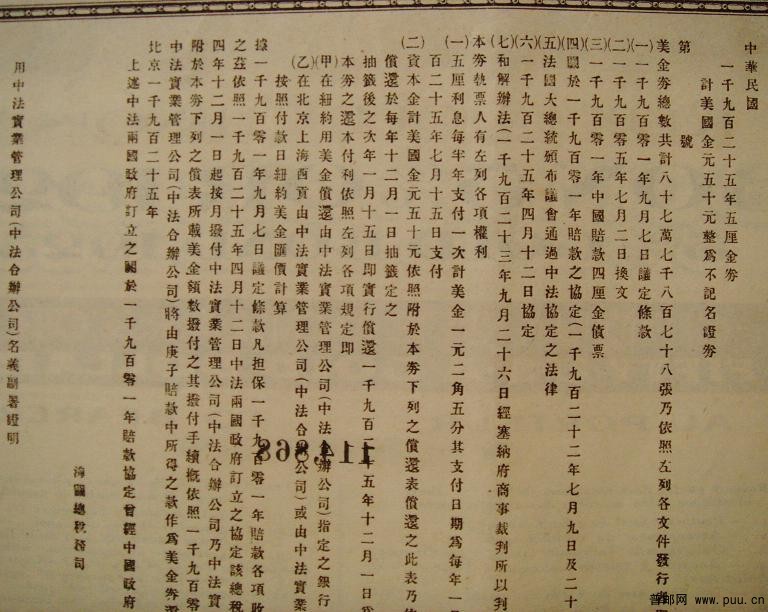 中華民國
一千九百二十五年五厘金券
計美國金元五十元整爲不記名證券
第　　號
美金券總數共計八十七萬七千八百七十八張乃依照左列各文件發行者
(一)一千九百零一年九月七日議定條款
(二)一千九百零五年七月二日換文
(三)一千九百零一年中國賠款四厘金債票
(四)關於一千九百零一年賠款之協定(一千九百二十二年七月九日及二十
(五)法國大總統頒布議會通過中法協定之法律
(六)一千九百二十五年四月十二日協定
(七)和解辦法(一千九百二十三年九月二十六日經塞納府商事裁判所以判
本券執票人有左列各項權利
(一)五厘利息每半年支付一次計美金一元二角五分其支付日期爲每年一
百二十五年七月十五日支付
(二)資本金計美國金元五十元依照附於本券下列之償還表償還之此表乃
償還於每年十二月一日抽籤定之
抽籤後之次年一月十五日即實行償還一千九百二十五年十二月一日爲
本券之還本付利依照左列各項規定即
(甲)在紐約用美金償還由中法實業管理公司(中法合辦公司)指定之銀行
(乙)在北京上海西貢由中法實業管理公司(中法合辦公司)或由中法實業
按照付款日紐約美金匯價計算
據一千九百零一年九月七日議定條款凡擔保一千九百零一年賠款各項收
之茲依照一千九百二十五年四月十二日中法兩國政府訂立之協定該總稅
四年十二月一日起按月撥付中法實業管理公司(中法合辦公司)乃中法實
附於本券下列之償表所載美金額數撥付之其撥付手續概依照一千九百零
中法實業管理公司(中法合辦公司)將由庚子賠款中所得之款作爲美金券還
北京一千九百二十五年
上述中法兩國政府訂立之關於一千九百零一年賠款協定曾經中國政府
海關總稅務司
用中法實業管理公司(中法合辦公司)名義副署證明
114,868
普邮网 www.puu.cn